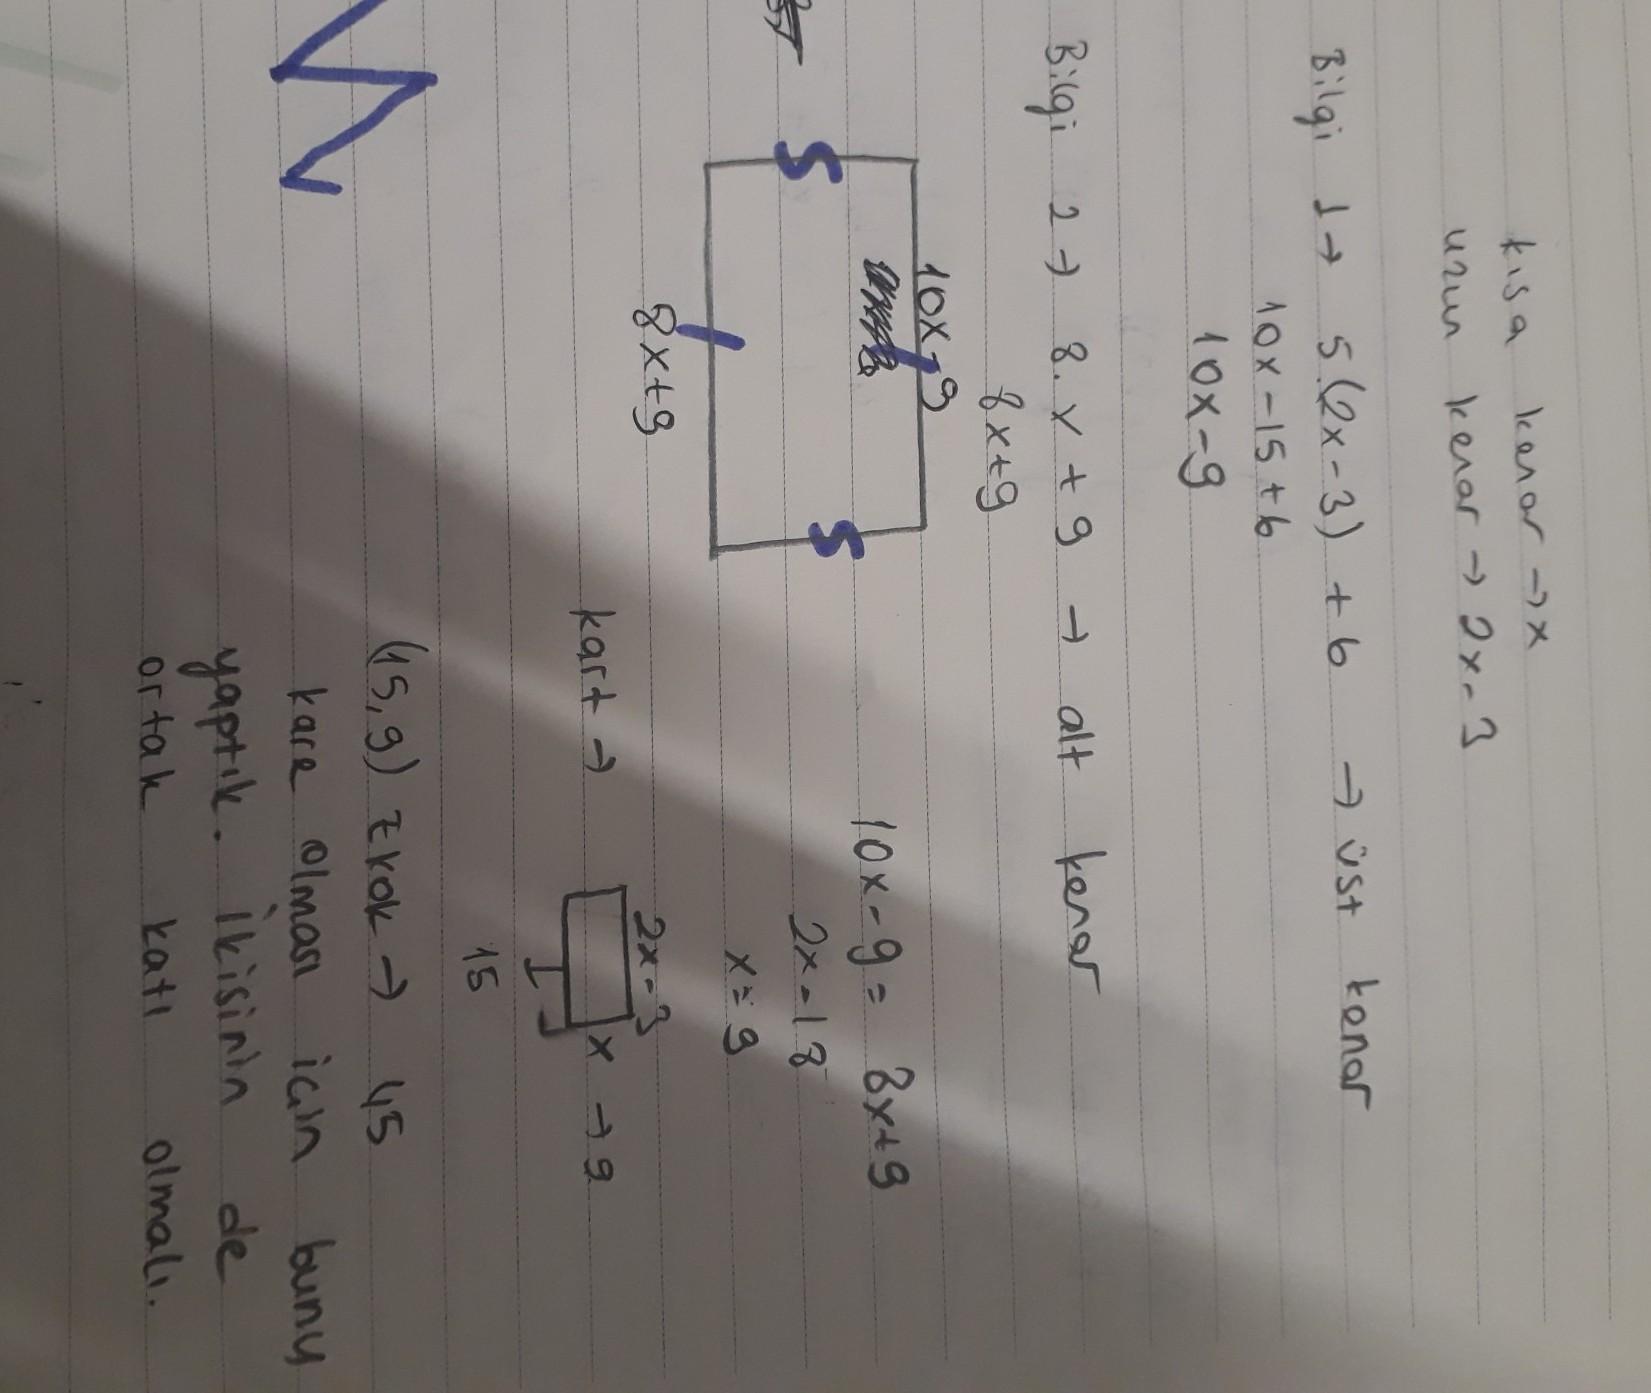 kısa kenar → x
uzun kenar → 2x - 3
Bilgi 1 → 5(2x - 3) + 6 → üst kenar
10x - 15 + 6
10x - 9
Bilgi 2 → 8.x + 9 → alt kenar
8x+9
10x - 9
8x+9
10x - 9 = 8x+9
2x - 18
x = 9
kart →
2x - 3
x → 9
15
(15,9) ekok → 45
kare olması için bunu
yaptık. İkisinin de
ortak katı olmalı.